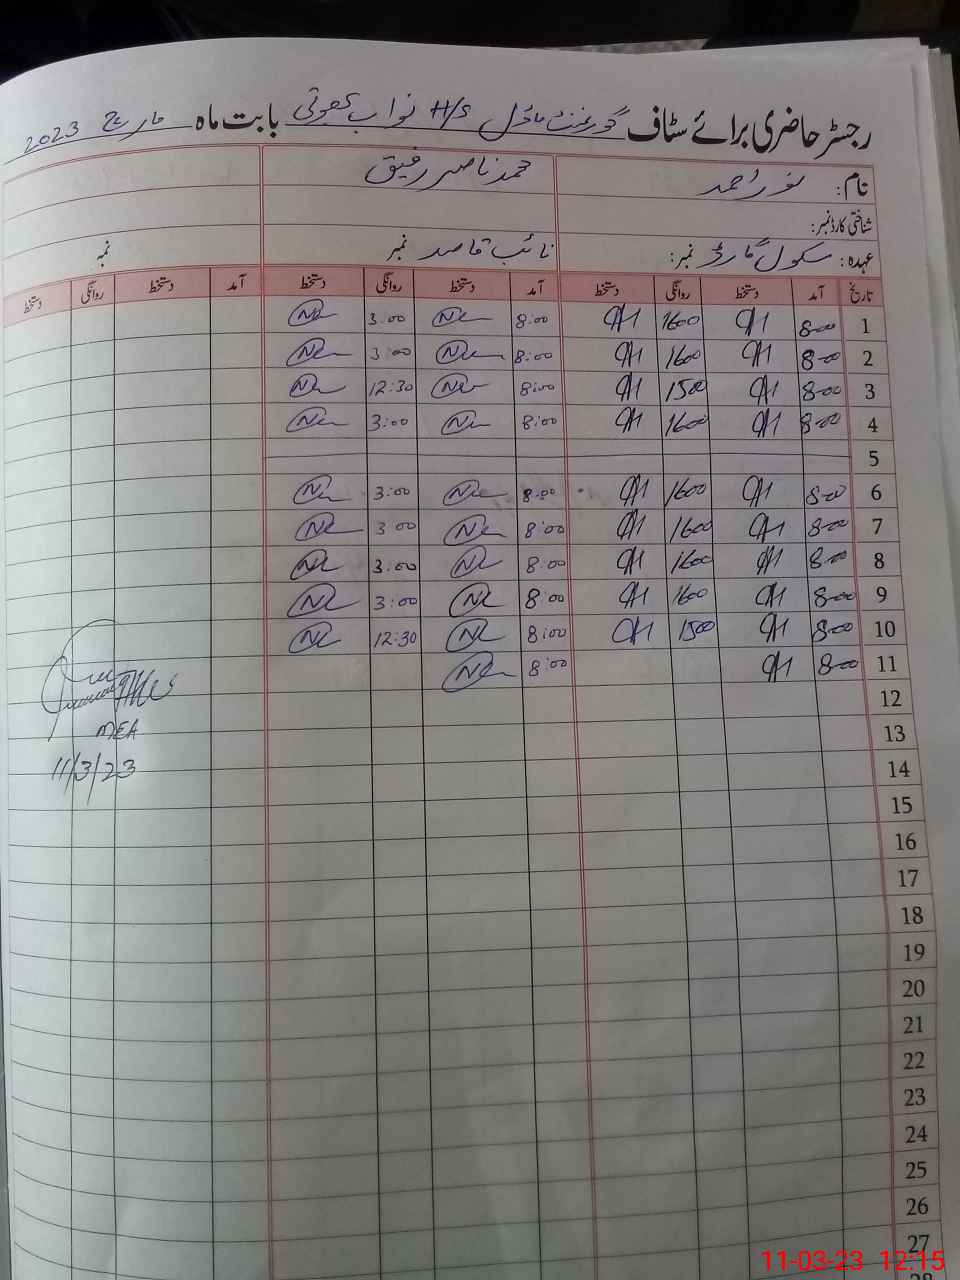 رجسٹر حاضری برائے سٹاف گورنمنٹ ماڈل H/S نواب بھوتی بابت ماہ مارچ 2023
نام: نور احمد محمد ناصر رفیق
شناختی کارڈ نمبر:
عہدہ: سکول گارڈ نمبر: نائب قاصد نمبر نمبر
تاریخ آمد دستخط روانگی دستخط آمد دستخط روانگی دستخط آمد دستخط روانگی دستخط
1 8-00 1600 8:00 3:00
2 8-00 1600 8:00 3:00
3 8-00 1500 8:00 12:30
4 8-00 1600 8:00 3:00
5
6 8-00 1600 8:00 3:00
7 8-00 1600 8:00 3:00
8 8-00 1600 8:00 3:00
9 8-00 1600 8:00 3:00
10 8-00 1500 8:00 12:30
11 8-00 8:00
12
13
14
15
16
17
18
19
20
21
22
23
24
25
26
27
28
MEA
11/3/23
11-03-23 12:15